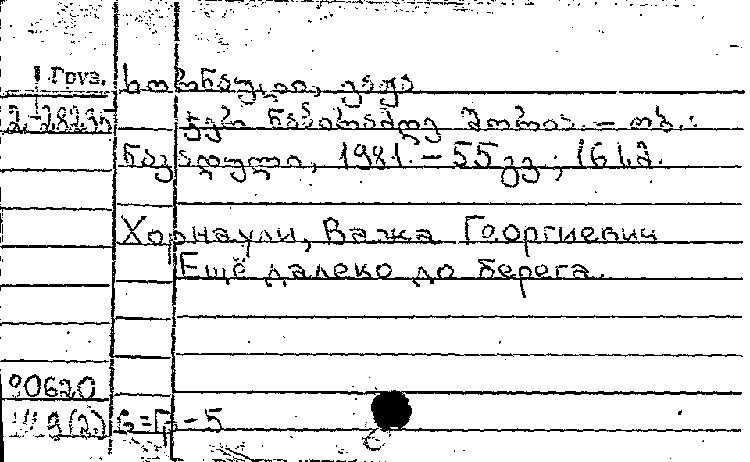 Груз. ხორნაული, ვაჟა
2-28235 ჯერ ნაპირამდე შორია. — თბ.:
ნაკადული, 1981. — 55 გვ.; 16 სმ.
Хорнаули, Важа Георгиевич
Ещё далеко до берега.
90620
Ш9(2)6=Гр-5